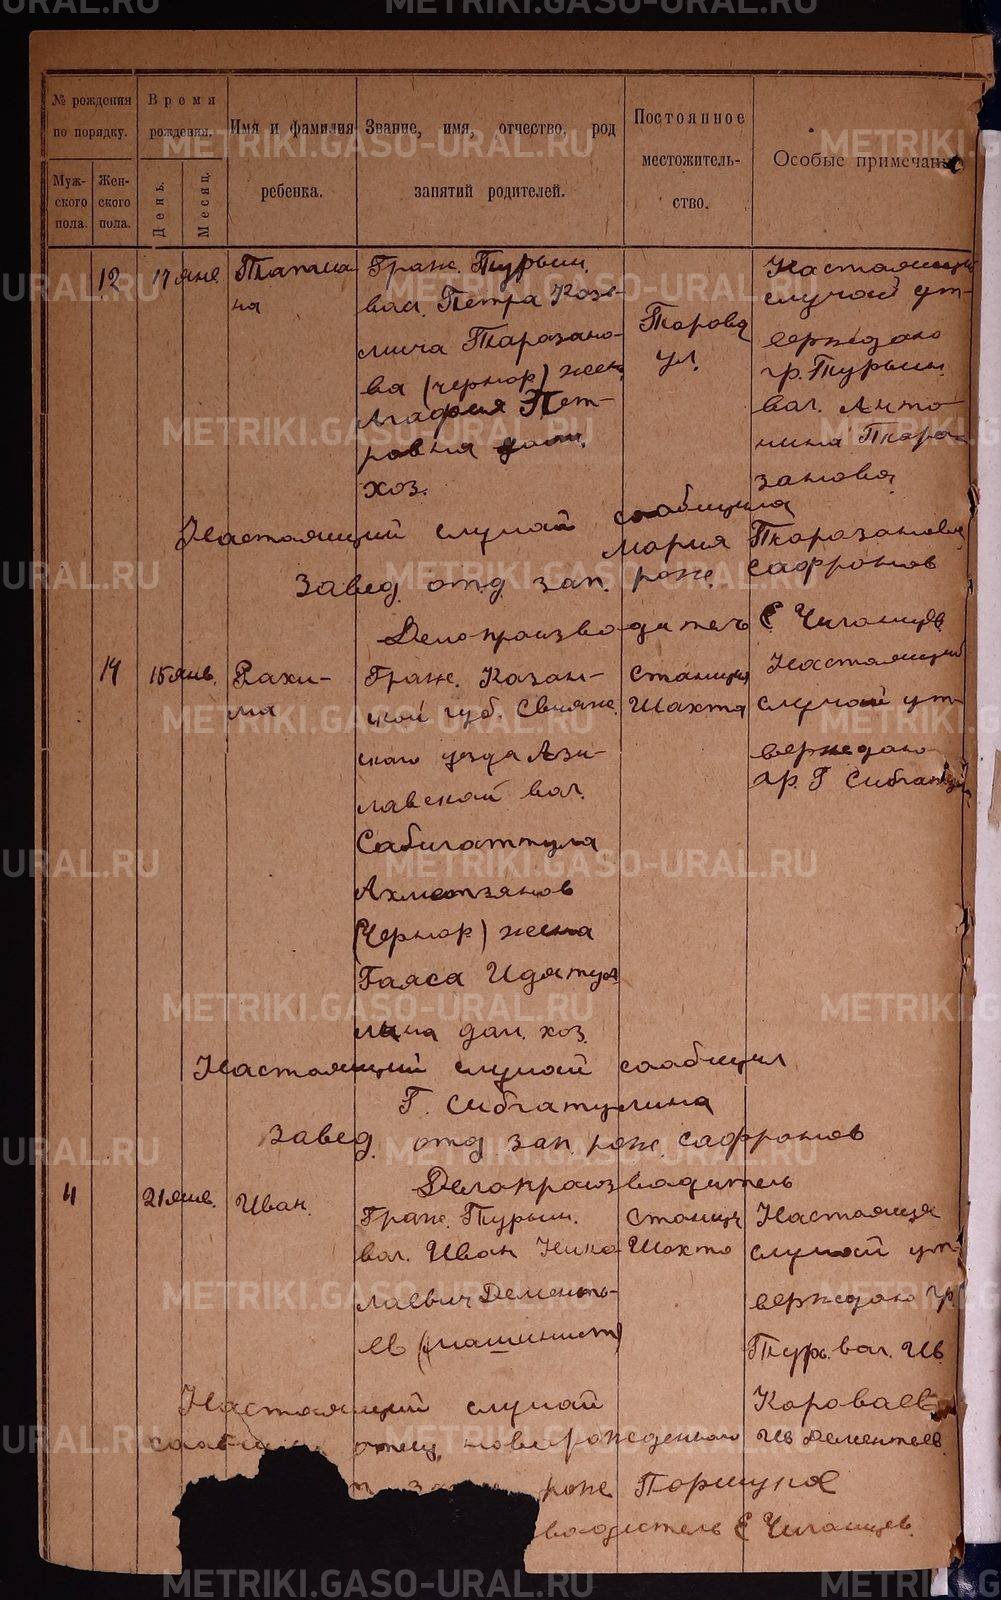 № рождения по порядку.
Время рождения.
Имя и фамилия ребенка.
Звание, имя, отчество, род занятий родителей.
Постоянное местожительство.
Особые примечан
Муж-ского пола.
Жен-ского пола.
День.
Месяц.
12
17 янв
Татиа
на
Граж. Турьин.
вол. Петра Козь-
мича Таразано-
ва (чернор) жен.
Агафия Пет-
ровна дом.
хоз.
ул.
Настоящий
случай ут-
верждаю
гр. Турьин.
вол. Анто-
нина Тара-
занова
Настоящий случай сообщила
Мария Таразанова
Завед. отд. зап. рож. Сафронов
Делопроизводитель Е Чиганцев
14
15 янв.
Рахи-
ма
Граж. Казан-
ской губ. Свияж.
ского уезда Ази-
лавской вол.
Сабигаттула
Ахметзянов
(Чернор.) жена
Гаяса Идяту-
лина дом. хоз.
Станция
Шахта
Настоящий
случай ут-
верждаю
гр. Г Сибгату
Настоящий случай сообщил
Г. Сибгатулина
Завед. отд зап. рож. Сафронов
Делопроизводитель
4
21 янв.
Иван.
Граж. Турьин.
вол. Иван Нико-
лаевич Дементь-
ев (машинист)
Станция
Шахта
Настоящия
случай ут-
верждаю гр.
Турь. вол. Ив.
Короваев
Ив Дементьев.
Настоящий случай
отец новорожденного
рож Поршуков
водитель Е Чиганцев.
METRIKI.GASO-URAL.RU